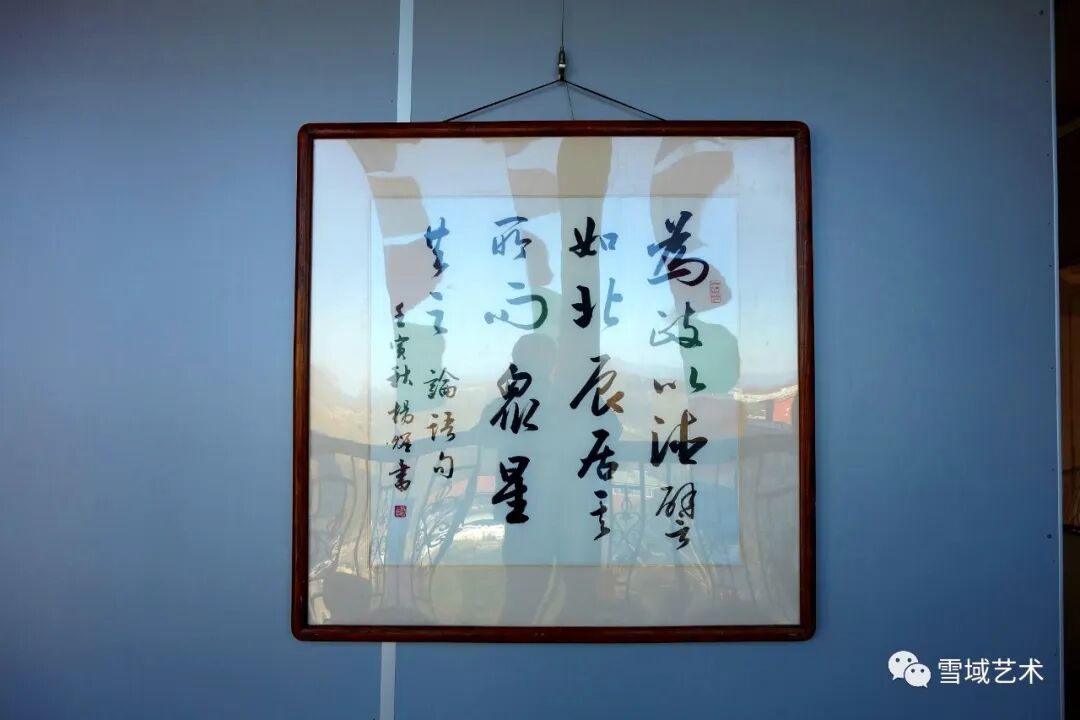 為政以德譬
如北辰居其
所而眾星
共之
論語句
壬寅秋楊煜書
雪域艺术